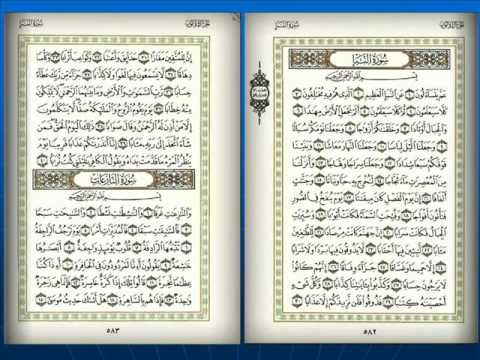 سُورَةُ النَّبَإِ
الجزء الثلاثون
سُورَةُ النَّبَإِ
بِسْمِ اللَّهِ الرَّحْمَٰنِ الرَّحِيمِ
عَمَّ يَتَسَاءَلُونَ ١ عَنِ النَّبَإِ الْعَظِيمِ ٢ الَّذِي هُمْ فِيهِ مُخْتَلِفُونَ ٣
كَلَّا سَيَعْلَمُونَ ٤ ثُمَّ كَلَّا سَيَعْلَمُونَ ٥ أَلَمْ نَجْعَلِ الْأَرْضَ مِهَادًا ٦
وَالْجِبَالَ أَوْتَادًا ٧ وَخَلَقْنَاكُمْ أَزْوَاجًا ٨ وَجَعَلْنَا نَوْمَكُمْ سُبَاتًا ٩
وَجَعَلْنَا اللَّيْلَ لِبَاسًا ١٠ وَجَعَلْنَا النَّهَارَ مَعَاشًا ١١ وَبَنَيْنَا
فَوْقَكُمْ سَبْعًا شِدَادًا ١٢ وَجَعَلْنَا سِرَاجًا وَهَّاجًا ١٣ وَأَنزَلْنَا
مِنَ الْمُعْصِرَاتِ مَاءً ثَجَّاجًا ١٤ لِّنُخْرِجَ بِهِ حَبًّا وَنَبَاتًا ١٥ وَجَنَّاتٍ
أَلْفَافًا ١٦ إِنَّ يَوْمَ الْفَصْلِ كَانَ مِيقَاتًا ١٧ يَوْمَ يُنفَخُ فِي الصُّورِ
فَتَأْتُونَ أَفْوَاجًا ١٨ وَفُتِحَتِ السَّمَاءُ فَكَانَتْ أَبْوَابًا ١٩ وَسُيِّرَتِ
الْجِبَالُ فَكَانَتْ سَرَابًا ٢٠ إِنَّ جَهَنَّمَ كَانَتْ مِرْصَادًا ٢١ لِّلطَّاغِينَ
مَآبًا ٢٢ لَّابِثِينَ فِيهَا أَحْقَابًا ٢٣ لَّا يَذُوقُونَ فِيهَا بَرْدًا وَلَا شَرَابًا ٢٤
إِلَّا حَمِيمًا وَغَسَّاقًا ٢٥ جَزَاءً وِفَاقًا ٢٦ إِنَّهُمْ كَانُوا
لَا يَرْجُونَ حِسَابًا ٢٧ وَكَذَّبُوا بِآيَاتِنَا كِذَّابًا ٢٨ وَكُلَّ شَيْءٍ
أَحْصَيْنَاهُ كِتَابًا ٢٩ فَذُوقُوا فَلَن نَّزِيدَكُمْ إِلَّا عَذَابًا ٣٠
٥٨٢
سُورَةُ النَّبَإِ
الجزء الثلاثون
إِنَّ لِلْمُتَّقِينَ مَفَازًا ٣١ حَدَائِقَ وَأَعْنَابًا ٣٢ وَكَوَاعِبَ أَتْرَابًا ٣٣ وَكَأْسًا
دِهَاقًا ٣٤ لَّا يَسْمَعُونَ فِيهَا لَغْوًا وَلَا كِذَّابًا ٣٥ جَزَاءً مِّن رَّبِّكَ عَطَاءً
حِسَابًا ٣٦ رَّبِّ السَّمَاوَاتِ وَالْأَرْضِ وَمَا بَيْنَهُمَا الرَّحْمَٰنِ لَا يَمْلِكُونَ
مِنْهُ خِطَابًا ٣٧ يَوْمَ يَقُومُ الرُّوحُ وَالْمَلَائِكَةُ صَفًّا لَّا يَتَكَلَّمُونَ
إِلَّا مَنْ أَذِنَ لَهُ الرَّحْمَٰنُ وَقَالَ صَوَابًا ٣٨ ذَٰلِكَ الْيَوْمُ الْحَقُّ فَمَن
شَاءَ اتَّخَذَ إِلَىٰ رَبِّهِ مَآبًا ٣٩ إِنَّا أَنذَرْنَاكُمْ عَذَابًا قَرِيبًا يَوْمَ
يَنظُرُ الْمَرْءُ مَا قَدَّمَتْ يَدَاهُ وَيَقُولُ الْكَافِرُ يَا لَيْتَنِي كُنتُ تُرَابًا ٤٠
سُورَةُ النَّازِعَاتِ
بِسْمِ اللَّهِ الرَّحْمَٰنِ الرَّحِيمِ
وَالنَّازِعَاتِ غَرْقًا ١ وَالنَّاشِطَاتِ نَشْطًا ٢ وَالسَّابِحَاتِ سَبْحًا
٣ فَالسَّابِقَاتِ سَبْقًا ٤ فَالْمُدَبِّرَاتِ أَمْرًا ٥ يَوْمَ تَرْجُفُ الرَّاجِفَةُ
٦ تَتْبَعُهَا الرَّادِفَةُ ٧ قُلُوبٌ يَوْمَئِذٍ وَاجِفَةٌ ٨ أَبْصَارُهَا
خَاشِعَةٌ ٩ يَقُولُونَ أَإِنَّا لَمَرْدُودُونَ فِي الْحَافِرَةِ ١٠ أَإِذَا كُنَّا
عِظَامًا نَّخِرَةً ١١ قَالُوا تِلْكَ إِذًا كَرَّةٌ خَاسِرَةٌ ١٢ فَإِنَّمَا هِيَ زَجْرَةٌ
وَاحِدَةٌ ١٣ فَإِذَا هُم بِالسَّاهِرَةِ ١٤ هَلْ أَتَاكَ حَدِيثُ مُوسَىٰ ١٥
٥٨٣